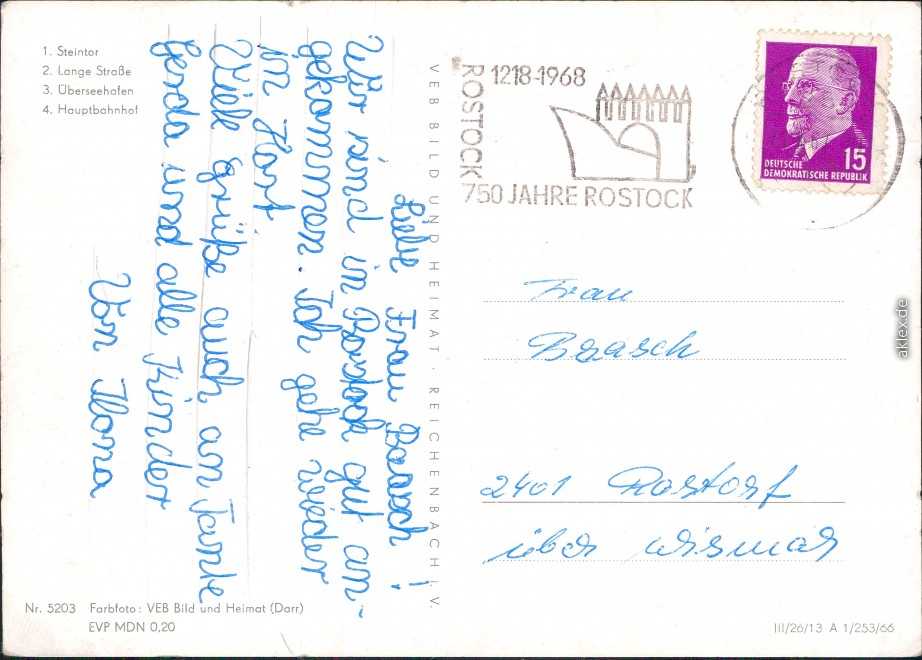 1. Steintor
2. Lange Straße
3. Überseehafen
4. Hauptbahnhof
Liebe Frau Brasch!
Wir sind in Rostock gut an-
gekommen. Ich gehe wieder
im Hort.
Viele grüße auch am Tante
Gerda und alle Kinder
Von Ilona
VEB BILD UND HEIMAT · REICHENBACH I. V.
Nr. 5203 Farbfoto: VEB Bild und Heimat (Darr)
EVP MDN 0,20
ROSTOCK
1218-1968
750 JAHRE ROSTOCK
15
DEUTSCHE
DEMOKRATISCHE REPUBLIK
Frau
Brasch
2401 Rastorf
über Wismar
III/26/13 A 1/253/66
aklex.de